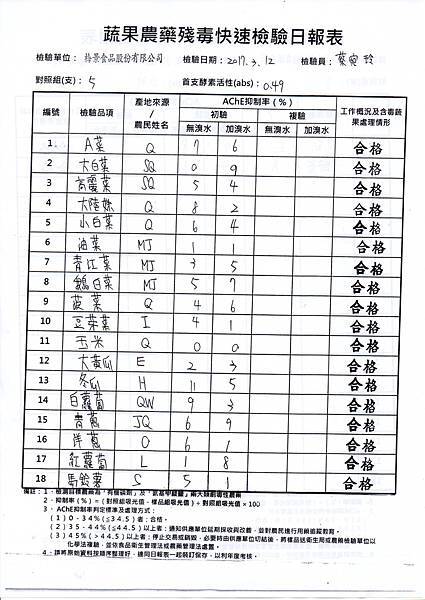 蔬果農藥殘毒快速檢驗日報表
檢驗單位： 裿景食品股份有限公司 檢驗日期：2017.3.12 檢驗員：蔡宛玲
對照組(支)：5 首支酵素活性(abs)：0.49
編號 檢驗品項 產地來源/農民姓名 AChE抑制率(%) 工作概況及含毒蔬果處理情形
初驗 複驗
無溴水 加溴水 無溴水 加溴水
1 A菜 Q 7 6 合格
2 大白菜 SQ 0 9 合格
3 高麗菜 SQ 5 4 合格
4 大陸妹 Q 8 2 合格
5 小白菜 Q 6 4 合格
6 油菜 MJ 1 1 合格
7 青江菜 MJ 3 5 合格
8 鵝白菜 MJ 5 7 合格
9 菠菜 Q 4 6 合格
10 豆芽菜 I 4 1 合格
11 玉米 Q 0 0 合格
12 大黃瓜 E 2 3 合格
13 冬瓜 H 11 5 合格
14 白蘿蔔 QW 9 3 合格
15 青蔥 JQ 6 9 合格
16 洋蔥 O 6 1 合格
17 紅蘿蔔 L 1 8 合格
18 馬鈴薯 S 5 1 合格
備註：1、檢測目標農藥為「有機磷劑」及「氨基甲酸鹽」兩大類劇毒性農藥
2、抑制率(%)=(對照組吸光值-樣品組吸光值)÷對照組吸光值×100
3、AChE抑制率判定標準及處理方式：
(1)0-34%(≤34.5)者：合格。
(2)35-44%(≤44.5)以上者：通知供應單位延期採收與改善，並對農民進行用藥追蹤教育。
(3)45%(>44.5)以上者：停止交易或銷毀，必要時由供應單位切結後，將樣品送衛生局或農藥檢驗單位以
化學法複驗，並依食品衛生管理法或農藥管理法處置。
4、請將原始資料按順序整理好，連同日報表一起裝訂保存，以利年度考核。